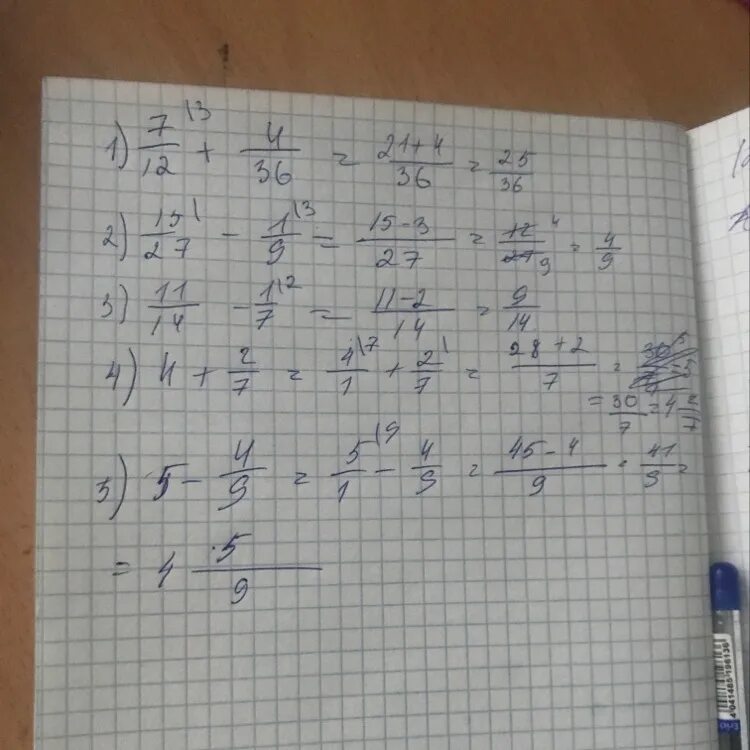 1) 7/12 \3 + 4/36 = 21+4/36 = 25/36
2) 15/27 \ - 1/9 \3 = 15-3/27 = 12/27 4 9 = 4/9
3) 11/14 - 1/7 \2 = 11-2/14 = 9/14
4) 4 + 2/7 = 4/1 \7 + 2/7 \ = 28+2/7 =
= 30/7 = 4 2/7
5) 5 - 4/9 = 5/1 \9 - 4/9 = 45-4/9 = 41/9 =
= 4 5/9
4041485196136